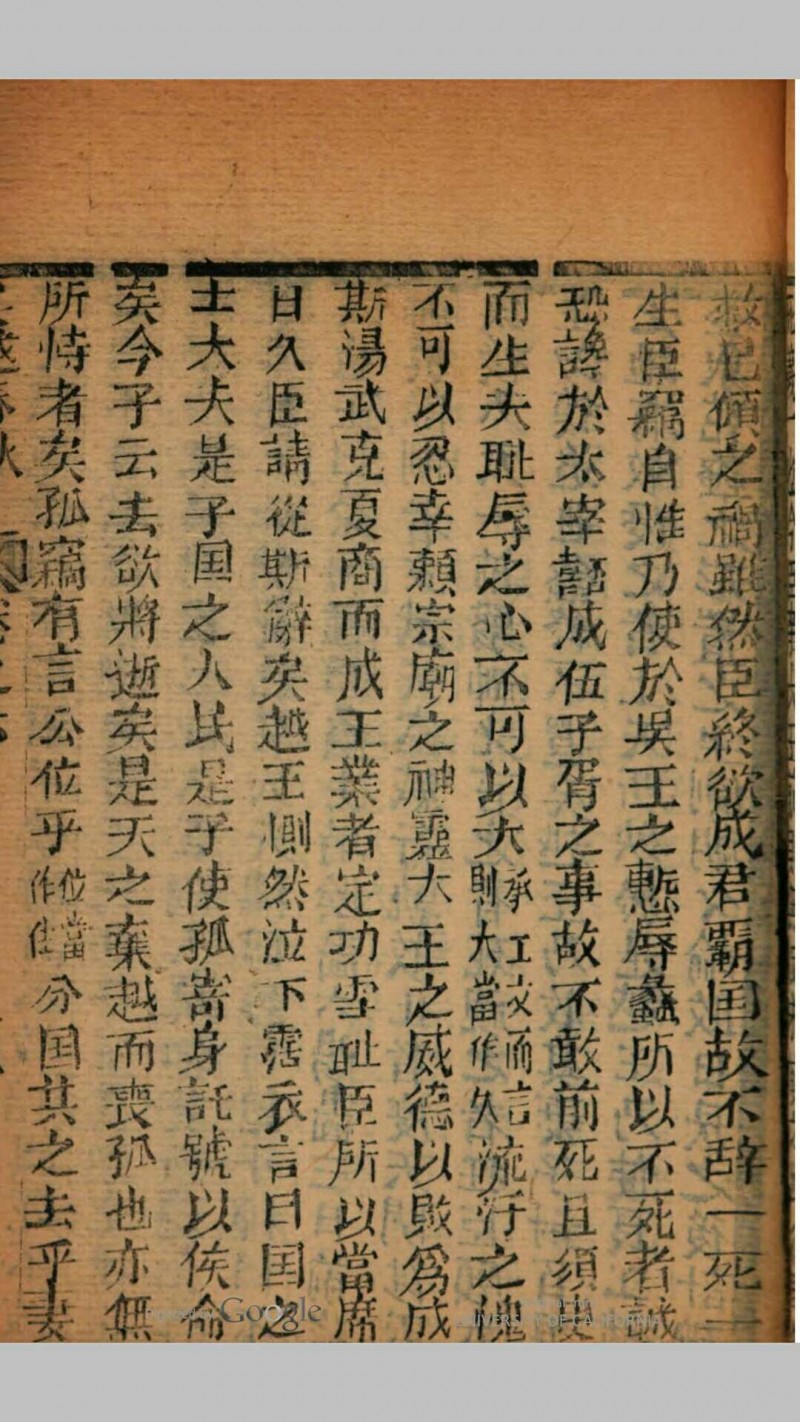 救已傾之禍雖然臣終欲成君霸国故不辞一死一
生臣竊自惟乃使於吳王之慙辱蠡所以不死者誠
恐讒於太宰嚭成伍子胥之事故不敢前死且須臾
而生夫耻辱之心不可以大承上文而言則大當作久流汗之愧
不可以忍幸頼宗廟之神靈大王之威德以敗爲成
斯湯武克夏商而成王業者定功雪耻臣所以當席
日久臣請從斯辭矣越王惻然泣下霑衣言曰国之
士大夫是子国之人民是子使孤寄身託號以俟命
矣今子云去欲將逝矣是天之棄越而喪孤也亦無
所恃者矣孤竊有言公位乎位當作住分国共之去乎妻
越春秋
Google
UNIVERSITY OF CALIFORNIA